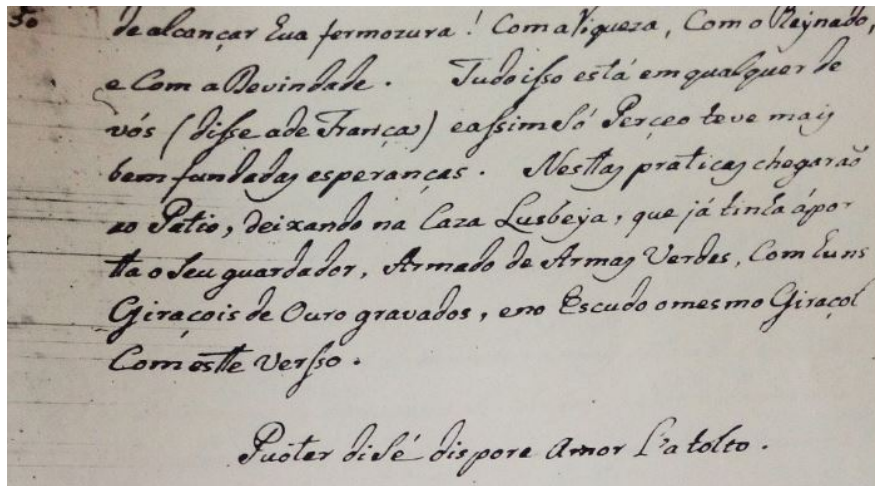 50 de alcançar hua fermozura! Com a Riqueza, Com o Reynado,
e Com a Devindade. Tudo isso está em qualquer de
vós (disse a de França) e assim só Perçeo teve mais
bem fundadas esperanças. Nesttas praticas chegarão
ao Patio, deixando na Caza Lusbeja, que já tinha á por
tta o seu guardador, Armado de Armas Verdes, Com huns
Giraçois de Ouro gravados, e no Escudo o mesmo Giraçol
Com estte Versso.
Puoter di sé dispore Amor l'ha tolto.